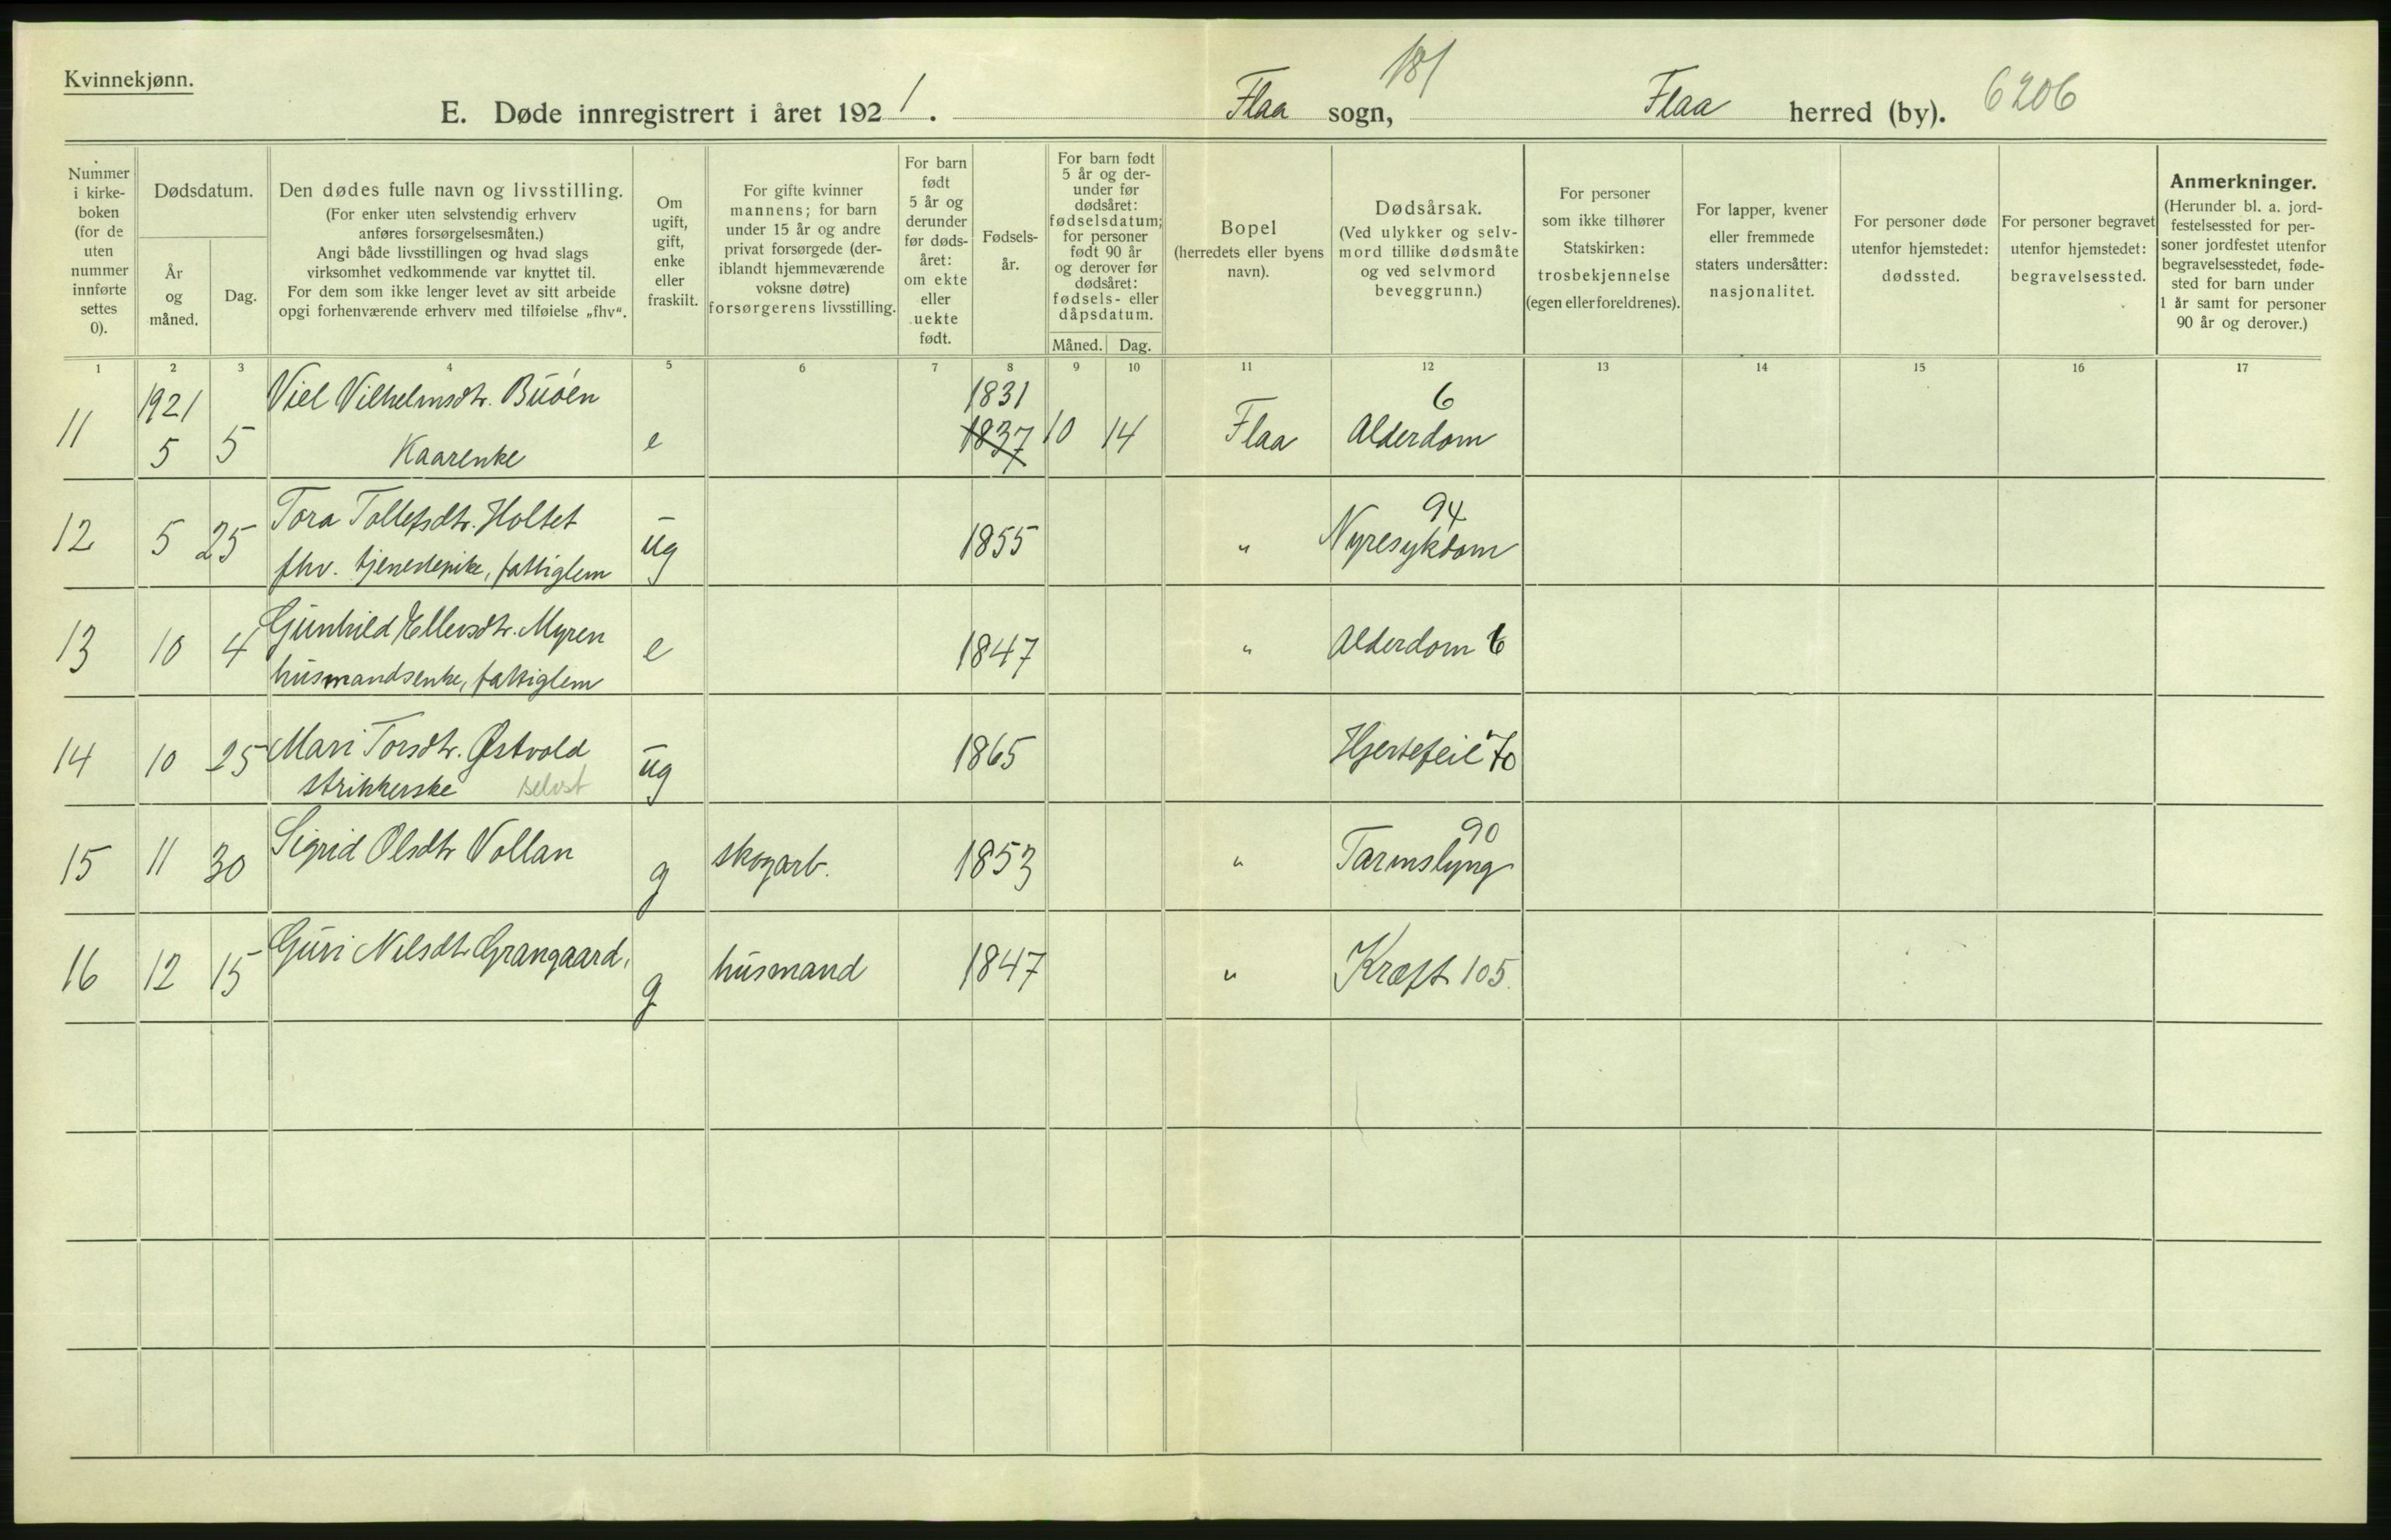 Kvinnekjønn.
181
E. Døde innregistrert i året 1921. Flaa sogn, Flaa herred (by). 6206
Nummer
i kirke-
boken
(for de
uten
nummer
innførte
settes
0).
Dødsdatum.
År
og
måned.
Dag.
Den dødes fulle navn og livsstilling.
(For enker uten selvstendig erhverv
anføres forsørgelsesmåten.)
Angi både livsstillingen og hvad slags
virksomhet vedkommende var knyttet til.
For dem som ikke lenger levet av sitt arbeide
opgi forhenværende erhverv med tilføielse „fhv“.
Om
ugift,
gift,
enke
eller
fraskilt.
For gifte kvinner
mannens; for barn
under 15 år og andre
privat forsørgede (der-
iblandt hjemmeværende
voksne døtre)
forsørgerens livsstilling.
For barn
født
5 år og
derunder
før døds-
året:
om ekte
eller
uekte
født.
Fødsels-
år.
For barn født
5 år og der-
under før
dødsåret:
fødselsdatum;
for personer
født 90 år
og derover før
dødsåret:
fødsels- eller
dåpsdatum.
Måned. Dag.
Bopel
(herredets eller byens
navn).
Dødsårsak.
(Ved ulykker og selv-
mord tillike dødsmåte
og ved selvmord
beveggrunn.)
For personer
som ikke tilhører
Statskirken:
trosbekjennelse
(egen eller foreldrenes).
For lapper, kvener
eller fremmede
staters undersåtter:
nasjonalitet.
For personer døde
utenfor hjemstedet:
dødssted.
For personer begravet
utenfor hjemstedet:
begravelsessted.
Anmerkninger.
(Herunder bl. a. jord-
festelsessted for per-
soner jordfestet utenfor
begravelsesstedet, føde-
sted for barn under
1 år samt for personer
90 år og derover.)
1 2 3 4 5 6 7 8 9 10 11 12 13 14 15 16 17
1921 Viel Vilhelmsdtr. Buøen 1831 6
11 5 5 Kaarenke e 1837 10 14 Flaa Alderdom
Tora Tollefsdtr. Holtet 94
12 5 25 fhv. tjenestepike, fattiglem ug 1855 " Nyresykdom
Gunhild Ellevsdtr. Myren
13 10 4 husmandsenke, fattiglem e 1847 " Alderdom 6
Mari Torsdtr. Østvold
14 10 25 strikkerske selvst ug 1865 " Hjertefeil 70
90
15 11 30 Sigrid Olsdtr Vollan g skogarb. 1853 " Tarmslyng
16 12 15 Guri Nilsdtr Grangaard, g husmand 1847 " Kræft 105.